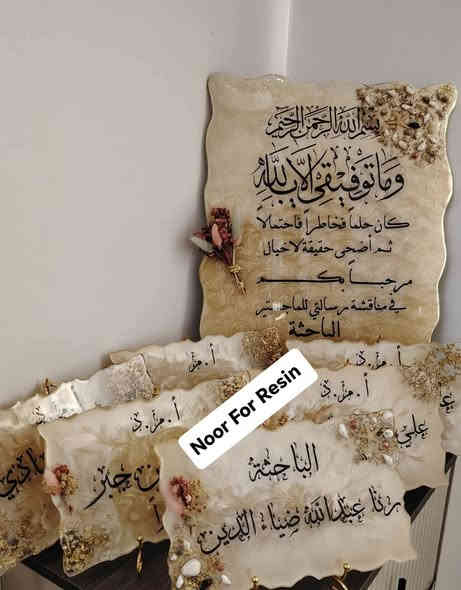 بسم الله الرحمن الرحيم
وما توفيقي إلا بالله
كان حلماً فخاطراً فاحتمالا
ثم أضحى حقيقة لا خيال
مرحباً بكم
في مناقشة رسالتي للماجستير
الباحثة
أ.م.د.
أ.م.د.
أ.م.د.
أ.م.د.
علي
Noor For Resin
الباحثة
رنا عبدالله ضياء الدين